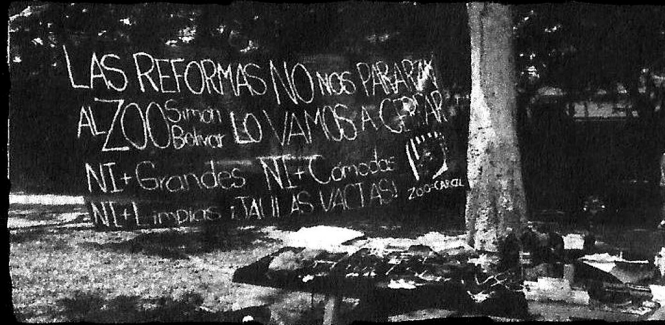 LAS REFORMAS NO NOS PARARAN
AL ZOO Simón Bolivar LO VAMOS A CERRAR
NI + Grandes NI + Cómodas
NI + Limpias ¡JAULAS VACIAS!
ZOO=CARCEL